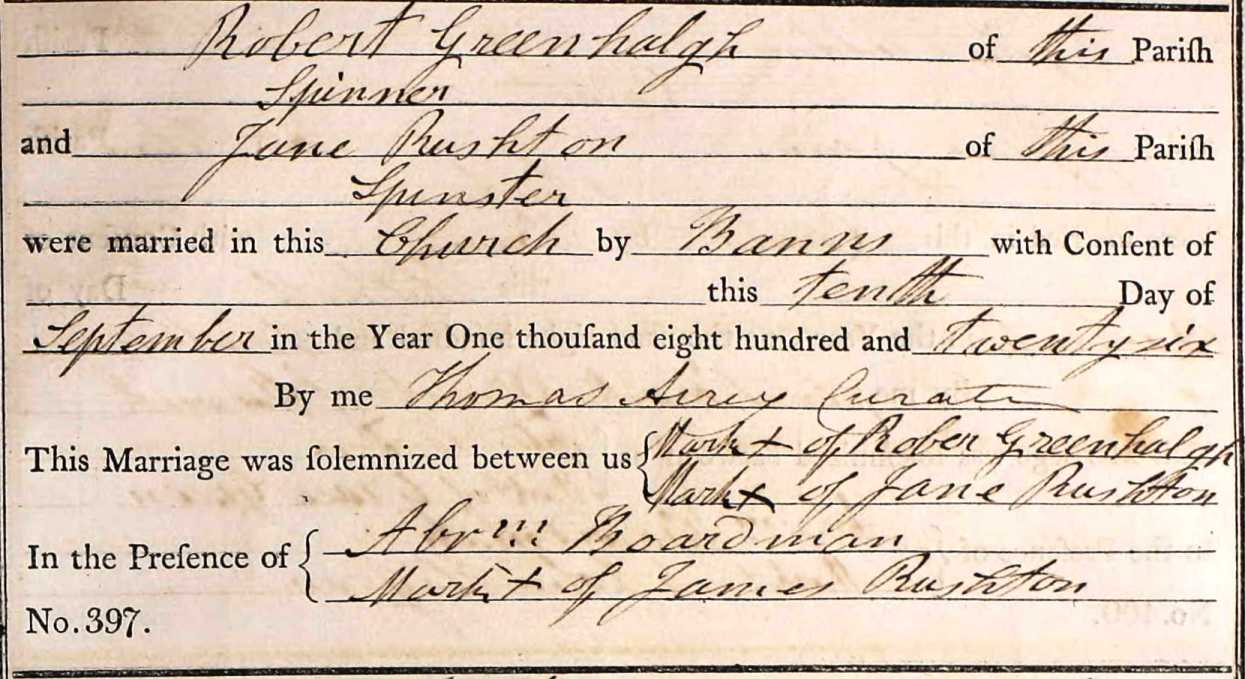 Robert Greenhalgh of this Pariſh
Spinner
and Jane Rushton of this Pariſh
Spinster
were married in this Church by Banns with Conſent of
this tenth Day of
September in the Year One thouſand eight hundred and twenty six
By me Thomas Airey Curate
This Marriage was ſolemnized between us { Mark + of Rober Greenhalgh
Mark + of Jane Rushton
In the Preſence of { Abrm Boardman
Mark + of James Rushton
No. 397.